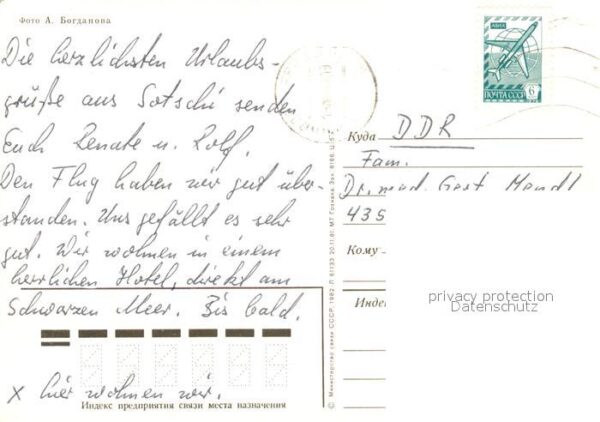 Фото А. Богданова
Die herzlichsten Urlaubs-
grüße aus Sotschi senden
Euch Renate u. Rolf.
Den Flug haben wir gut über-
standen. Uns gefällt es sehr
gut. Wir wohnen in einem
herrlichen Hotel, direkt am
Schwarzen Meer. Bis bald.
x hier wohnen wir.
Индекс предприятия связи места назначения
© Министерство связи СССР. 1982
АВИА
ПОЧТА СССР
6
Куда DDR
Fam.
Dr. med. Gert Mendl
435
Кому
Инде
privacy protection
Datenschutz